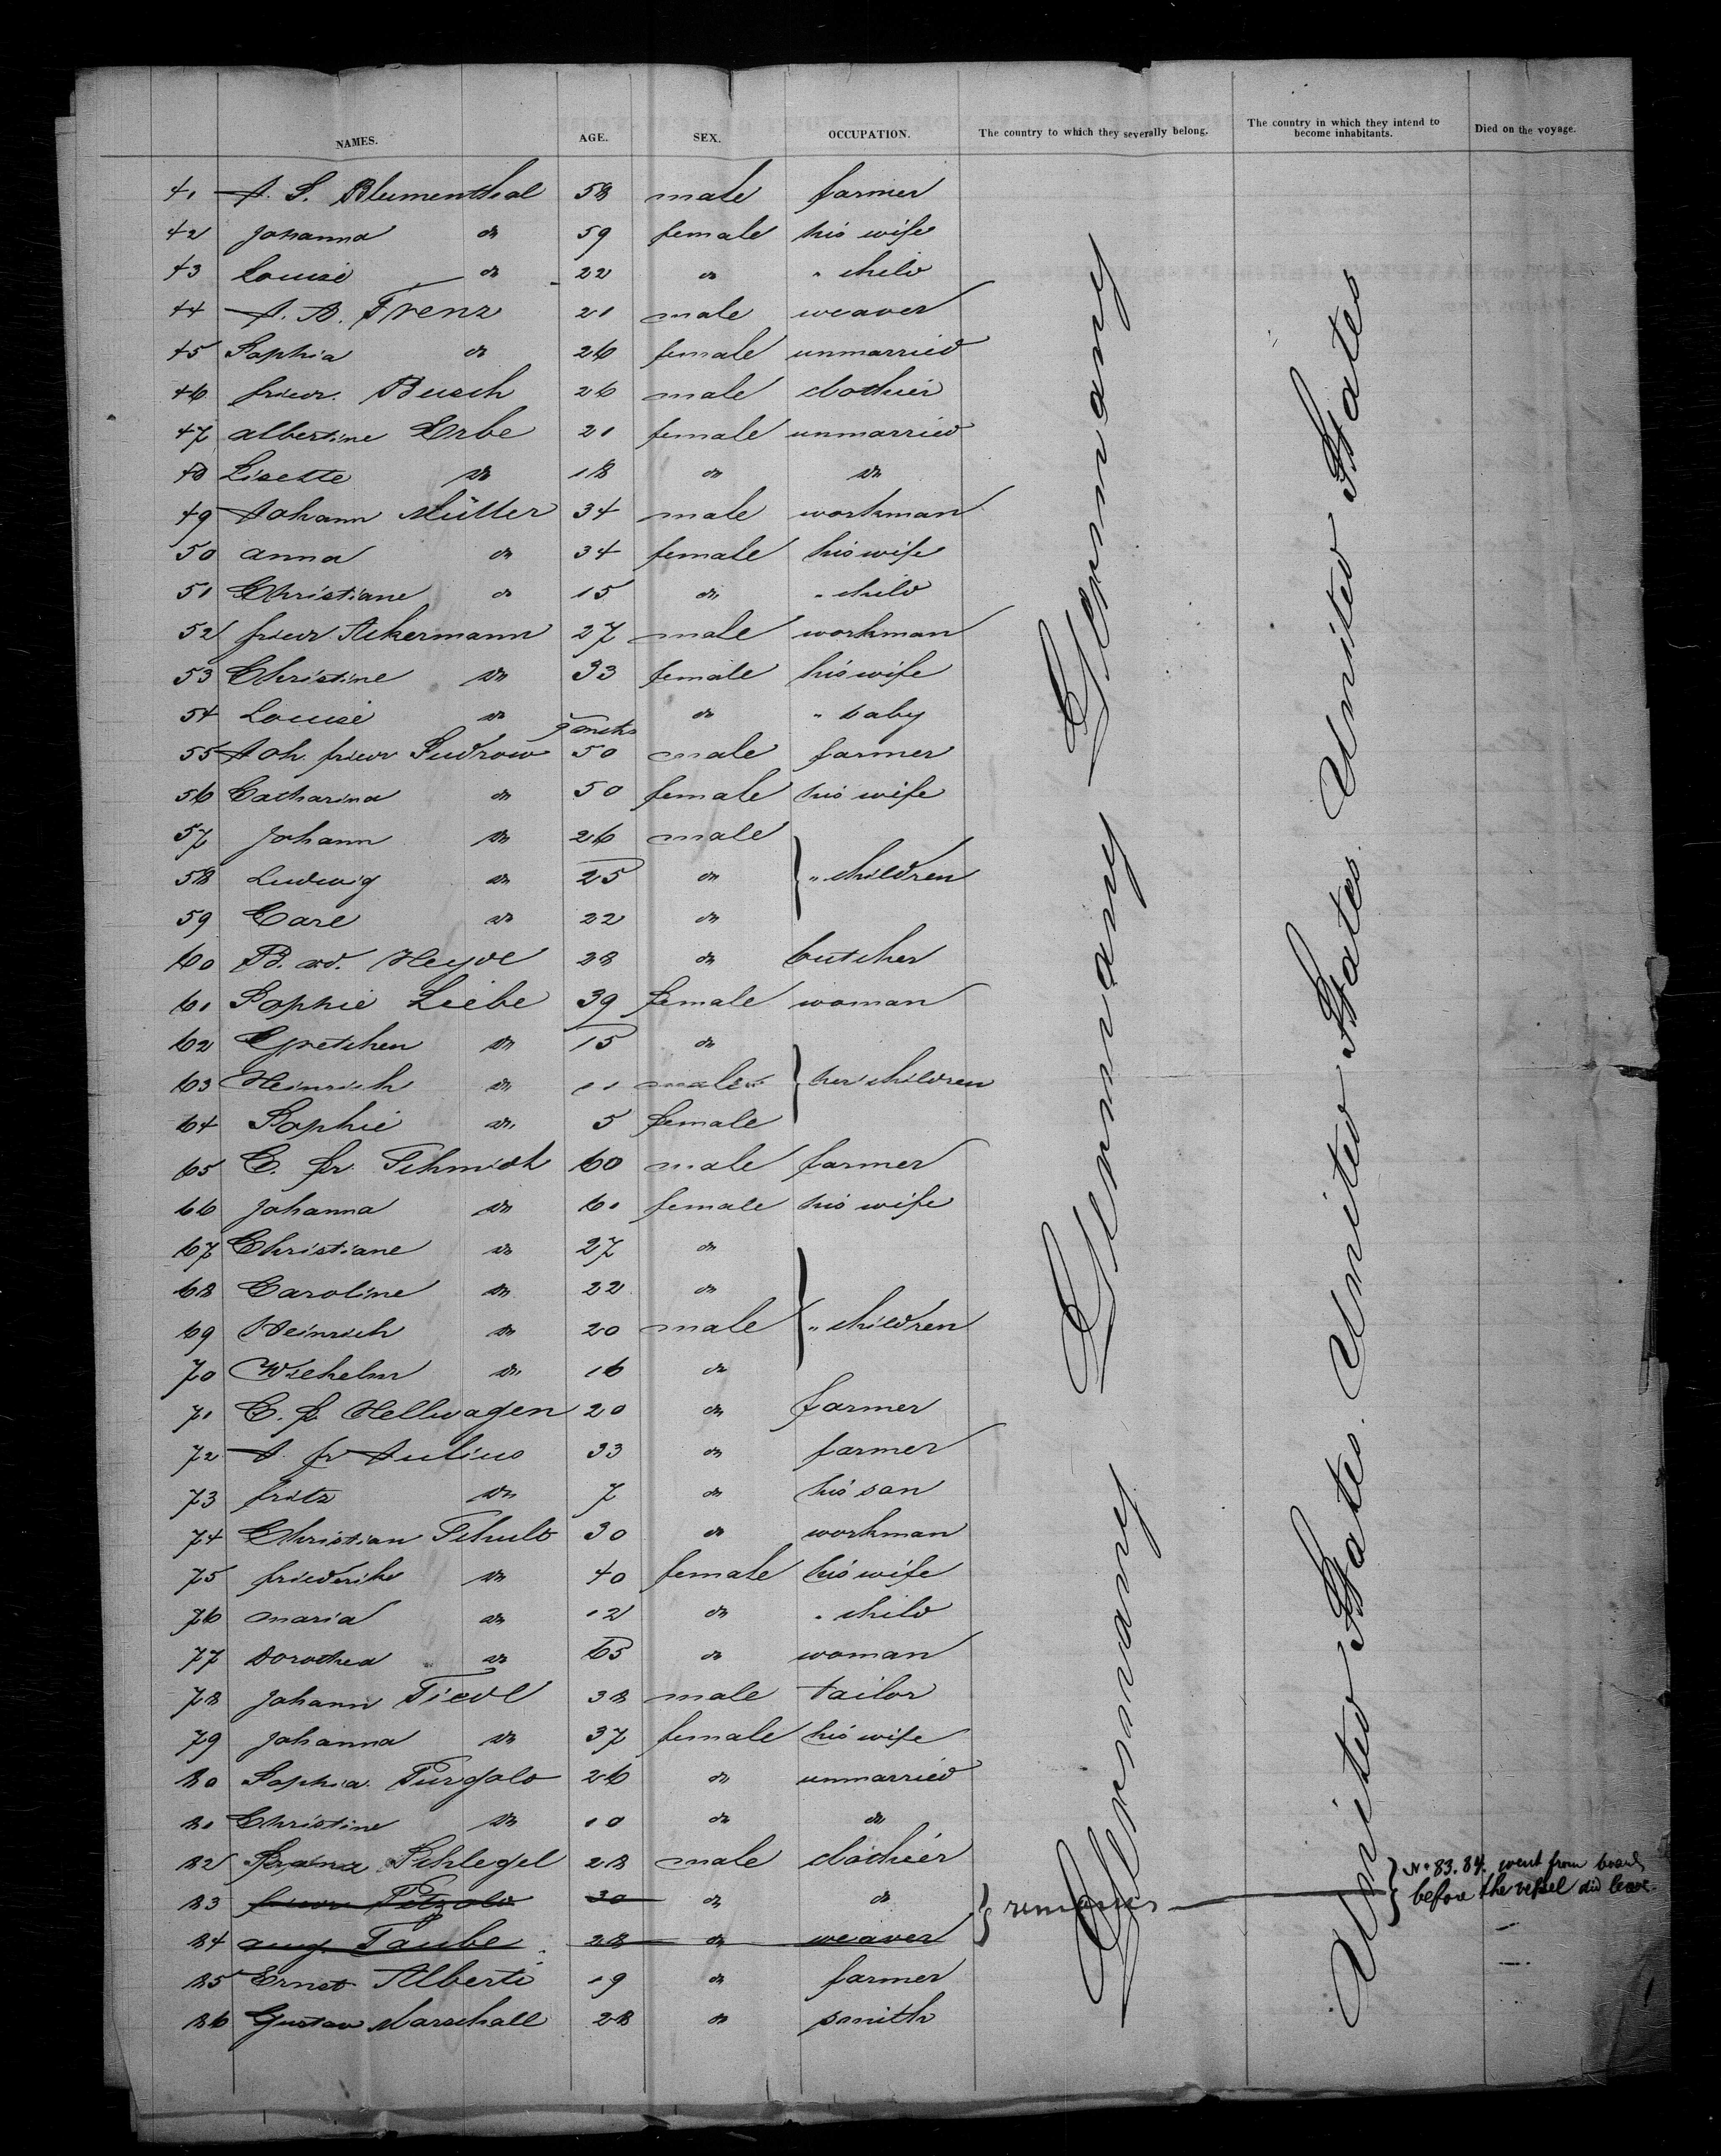 NAMES. AGE. SEX. OCCUPATION. The country to which they severally belong. The country in which they intend to become inhabitants. Died on the voyage.
41 J. S. Blumenthal 58 male farmer
42 Johanna do 59 female his wife
43 Louise do 22 do " child
44 J. A. Frenz 21 male weaver
45 Sophia do 26 female unmarried
46 friedr. Busch 26 male clothier
47 albertine Erbe 21 female unmarried
48 Lisette do 18 do do
49 Johann Müller 34 male workman
50 anna do 34 female his wife
51 Christiane do 15 do " child
52 friedr Ackermann 27 male workman
53 Christine do 33 female his wife
54 Louise do 9 mths do " baby
55 Joh. friedr Sudrow 50 male farmer
56 Catharina do 50 female his wife
57 Johann do 26 male
58 Ludwig do 25 do " children
59 Carl do 22 do
60 B. ad. Heyde 28 do butcher
61 Sophie Liebe 39 female woman
62 Gretchen do 15 do
63 Heinrich do 11 male her children
64 Sophie do 5 female
65 C. fr. Schmidt 60 male farmer
66 Johanna do 61 female his wife
67 Christiane do 27 do
68 Caroline do 22 do
69 Heinrich do 20 male " children
70 Wilhelm do 16 do
71 C. f. Hellwagen 20 do farmer
72 J. fr Julius 33 do farmer
73 fritz do 7 do his son
74 Christian Schuld 30 do workman
75 friederike do 40 female his wife
76 maria do 12 do " child
77 Dorothea do 65 do woman
78 Johann Tiede 38 male tailor
79 Johanna do 37 female his wife
80 Sophia Purgold 26 do unmarried
81 Christine do 10 do do
82 Franz Schlegel 28 male clothier
83 friedr Petzold 30 do do remarks No 83. 84. went from board
84 aug. Taube 28 do weaver before the vessel did leave.
85 Ernst Alberti 19 do farmer
86 Gustav Marschall 28 do smith
Germany Germany Germany
United States. United States. United States